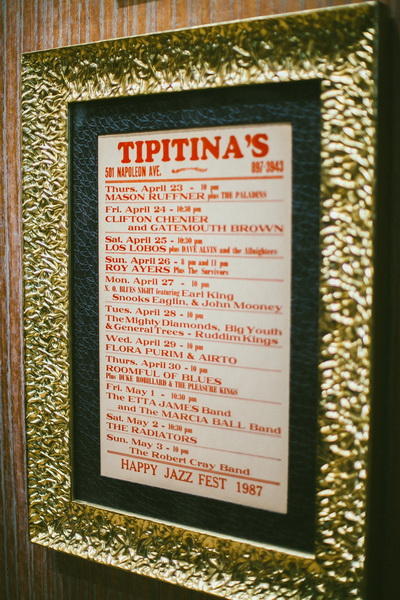 TIPITINA'S
501 NAPOLEON AVE. 897-3943
Thurs. April 23 - 10 pm
MASON RUFFNER plus THE PALADINS
Fri. April 24 - 10:30 pm
CLIFTON CHENIER
and GATEMOUTH BROWN
Sat. April 25 - 10:30 pm
LOS LOBOS plus DAVE ALVIN and the Allnighters
Sun. April 26 - 8 pm and 11 pm
ROY AYERS Plus The Survivors
Mon. April 27 - 10 pm
N. O. BLUES NIGHT featuring Earl King
Snooks Eaglin, & John Mooney
Tues. April 28 - 10 pm
The Mighty Diamonds, Big Youth
& General Trees - Ruddim Kings
Wed. April 29 - 10 pm
FLORA PURIM & AIRTO
Thurs. April 30 - 10 pm
ROOMFUL OF BLUES
Plus DUKE ROBILLARD & THE PLEASURE KINGS
Fri. May 1 - 10:30 pm
The ETTA JAMES Band
and The MARCIA BALL Band
Sat. May 2 - 10:30 pm
THE RADIATORS
Sun. May 3 - 10 pm
The Robert Cray Band
HAPPY JAZZ FEST 1987